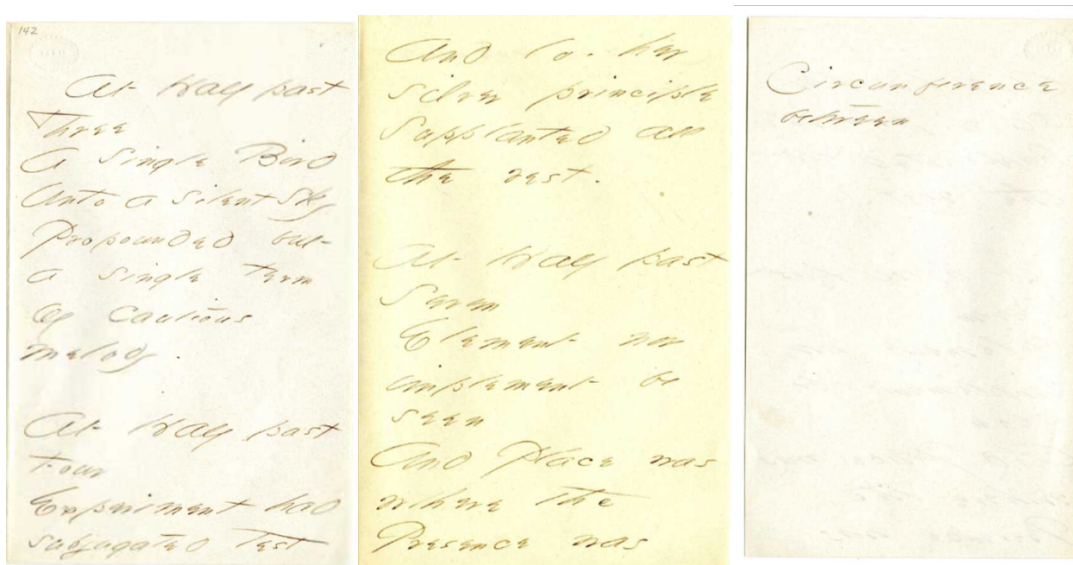 142
At Half past
Three
A Single Bird
Unto a Silent Sky
Propounded but
a single term
Of cautious
melody.
At Half past
Four
Experiment had
subjugated test
And lo. her
silver principle
Supplanted all
the rest.
At Half past
Seven
Element nor
implement be
seen
And Place was
where the
Presence was
Circumference
between